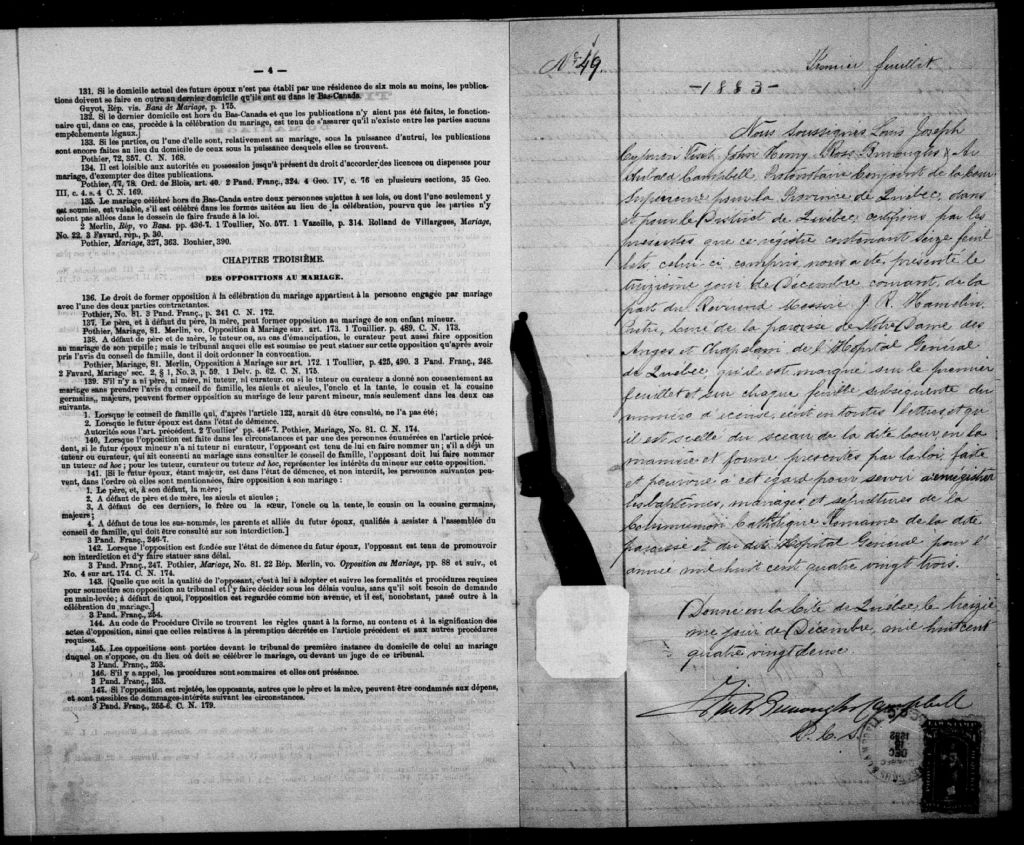 — 4 —
131. Si le domicile actuel des future époux n'est pas établi par une résidence de six mois au moins, les publica-
tions doivent se faire en outre au dernier domicile qu'ils ont eu dans le Bas-Canada.
Guyot, Rép. vis. Bans de Mariage, p. 175.
132. Si le dernier domicile est hors du Bas-Canada et que les publications n'y aient pas été faites, le fonction-
naire qui, dans ce cas, procède à la célébration du mariage, est tenu de s'assurer qu'il n'existe entre les parties aucuns
empêchements légaux.]
133. Si les parties, ou l'une d'elle sont, relativement au mariage, sous la puissance d'autrui, les publications
sont encore faites au lieu du domicile de ceux sous la puissance desquels elles se trouvent.
Pothier, 72, 357. C. N. 168.
134. Il est loisible aux autorités en possession jusqu'à présent du droit d'accorder des licences ou dispenses pour
mariage, d'exempter des dites publications.
Pothier, 77, 78. Ord. de Blois, art. 40. 2 Pand. Franç., 324. 4 Geo. IV, c. 76 en plusieurs sections, 35 Geo.
III, c. 4. s. 4 C. N. 169.
135. Le mariage célébré hors du Bas-Canda entre deux personnes sujettes à ses lois, ou dont l'une seulement y
est soumise, est valable, s'il est célébré dans les formes usitées au lieu de la célébration, pourvu que les parties n'y
soient pas allées dans le dessein de faire fraude à la loi.
2 Merlin, Rép, vo Bans. pp. 436-7. 1 Toullier, No. 577. 1 Vazeille, p. 314. Rolland de Villargues, Mariage,
No. 22. 3 Favard, rép., p. 30.
Pothier, Mariage, 327, 363. Bouhier, 390.
CHAPITRE TROISIÈME.
DES OPPOSITIONS AU MARIAGE.
136. Le droit de former opposition à la célébration du mariage appartient à la personne engagée par mariage
avec l'une des deux parties contractantes.
Pothier, No. 81. 3 Pand. Franç., p. 241 C. N. 172.
137. Le père, et à défaut du père, la mère, peut former opposition au mariage de son enfant mineur.
Pothier, Mariage, 81. Merlin, vo. Opposition à Mariage sur. art. 173. 1 Touillier. p. 489. C. N. 173.
138. A défaut de père et de mère, le tuteur ou, au cas d'émancipation, le curateur peut aussi faire opposition
au mariage de son pupille; mais le tribunal auquel elle est soumise ne peut statuer sur cette opposition qu'après avoir
pris l'avis du conseil de famille, dont il doit ordonner la convocation.
Pothier, Mariage, 81. Merlin, Opposition à Mariage sur art. 172. 1 Toullier, p. 425, 490. 3 Pand. Franç., 248.
2 Favard, Mariage' sec. 2, § 1, No. 3, p. 59. 1 Delv. p. 62. C. N. 175.
139. S'il n'y a ni père, ni mère, ni tuteur, ni curateur. ou si le tuteur ou curateur a donné son consentement au
mariage sans prendre l'avis du conseil de famille, les aïeuls et aïeules, l'oncle et la tante, le cousin et la cousine
germains,, majeurs, peuvent former opposition au mariage de leur parent mineur, mais seulement dans les deux cas
suivants.
1. Lorsque le conseil de famille qui, d'après l'article 122, aurait dû être consulté, ne l'a pas été;
2. Lorsque le futur époux est dans l'état de démence.
Autorités sous l'art. précédent. 2 Toullier' pp. 446-7. Pothier, Mariage, No. 81. C. N. 174.
140, Lorsque l'opposition est faite dans les circonstances et par une des personnes énumérées en l'article précé-
dent, si le futur époux mineur n'a ni tuteur ni curateur, l'opposant est tenu de lui en faire nommer un; s'il a déjà un
tuteur ou curateur, qui ait consenti au mariage sans consulter le conseil de famille, l'opposant doit lui faire nommer
un tuteur ad hoc; pour les tuteur, curateur ou tuteur ad hoc, représenter les intérêts du mineur sur cette opposition.
141. [Si le futur époux, étant majeur, est dans l'état de démence, et non interdit, les personnes suivantes peu-
vent, dans l'ordre où elles sont mentionnées, faire opposition à son mariage:
1. Le père, et, à son défaut, la mère;
2. A défaut de père et de mère, les aïeuls et aïeules;
3. A défaut de ces derniers, le frère ou la sœur, l'oncle ou la tente, le cousin ou la cousine germains,
majeurs;
4. A défaut de tous les sus-nommés, les parents et alliés du futur époux, qualifiés à assister à l'assemblée du
conseil de famille, qui doit être consulté sur son interdiction.]
3 Pand. Franç., 246-7.
142. Lorsque l'opposition est fondée sur l'état de démence du futur époux, l'opposant est tenu de promouvoir
son interdiction et d'y faire statuer sans délai.
3 Pand. Franç., 247. Pothier, Mariage, No. 81. 22 Rép. Merlin, vo. Opposition au Mariage, pp. 88 et suiv., et
No. 4 sur art. 174. C. N. 174.
143. [Quelle que soit la qualité de l'opposant, c'est à lui à adopter et suivre les formalités et procédures requises
pour soumettre son opposition au tribunal et l'y faire décider sous les délais voulus, sans qu'il soit besoin de demande
en main-levée; à défaut de quoi, l'opposition est regardée comme non avenue, et il est, nonobstant, passé outre à la
célébration du mariage.]
3 Pand. Franç., 254.
144. Au code de Procédure Civile se trouvent les règles quant à la forme, au contenu et à la signification des
actes d'opposition, ainsi que celles relatives à la péremption décrétée en l'article précédent et aux autres procédures
requises.
145. Les oppositions sont portées devant le tribunal de première instance du domicile de celui au mariage
duquel on s'oppose, ou du lieu où doit se célébrer le mariage, ou devant un juge de ce tribunal.
3 Pand. Franç., 253.
146. S'il y a appel, les procédures sont sommaires et elles ont présénce.
3 Pand. Franç., 253.
147. Si l'opposition est rejetée, les opposants, autres que le père et la mère, peuvent être condamnés aux dépens,
et sont passibles de dommages-intérêts suivant les circonstances.
3 Pand. Franç., 255-6. C. N. 179.
No 49
Premier feuillet
-1883-
Nous Soussignés Louis Joseph
Cyprien Fiset, John Henry Ross Burroughs & Ar
chibald Campbell Protonotaire Conjoint de la Cour
Supérieure pour la Province de Québec, dans
et pour le District de Québec, certifions par les
présentes que ce registre contenant seize feuil
lets, celui-ci compris, nous a été présenté le
treizième jour de Décembre courant, de la
part du Révérend Messire J. R. Hamelin
Ptre, Curé de la paroisse de Notre Dame des
Anges et Chapelain de l'Hôpital Général
de Québec, qu'il est marqué sur le premier
feuillet et sur chaque feuillet subséquent du
numéro d'icenx, écrit en toutes lettres et qu
il est scellé du sceau de la dite Cour en la
manière et forme prescrites par la loi faite
et pourvue à cet égard pour servir à enregistrer
les baptêmes, mariages et sépultures de la
Communion Catholique Romaine de la dite
paroisse et du dit Hôpital Général pour l'
année mil huit cent quatre vingt trois.
Donné en la Cité de Québec, le treiziè
me jour de Décembre, mil huit cent
quatre vingt deuse
Fiset Burroughs Campbell
P. C. S.